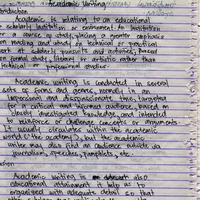 Academic Writing
Introduction
Academic is relating to an educational
or scholarly institution or environment. to institution
or a course of study, placing a greater emphasis
on reading and study than technical or practical
work or scholarly pursuits and activities, based
on formal study, literary or artistic rather than
technical or professional studies.
Academic writing is conducted in several
sets of forms and genres, normally in an
impersonal and dispassionate tone, targeted
for a critical and informed audience, based on
closely investigated knowledge, and intended
to reinforce or challenge concepts or arguments.
It usually circulates within the academic
world ('the academy'), but the academic
writer may also find an audience outside via
journalism, speeches, pamphlets, etc.
Academic writing is also
educational attainment it help us to
organized with adequate detail so that